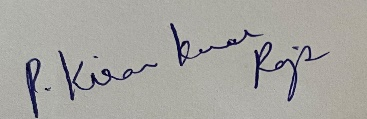 P. Kiran Kumar
Raja